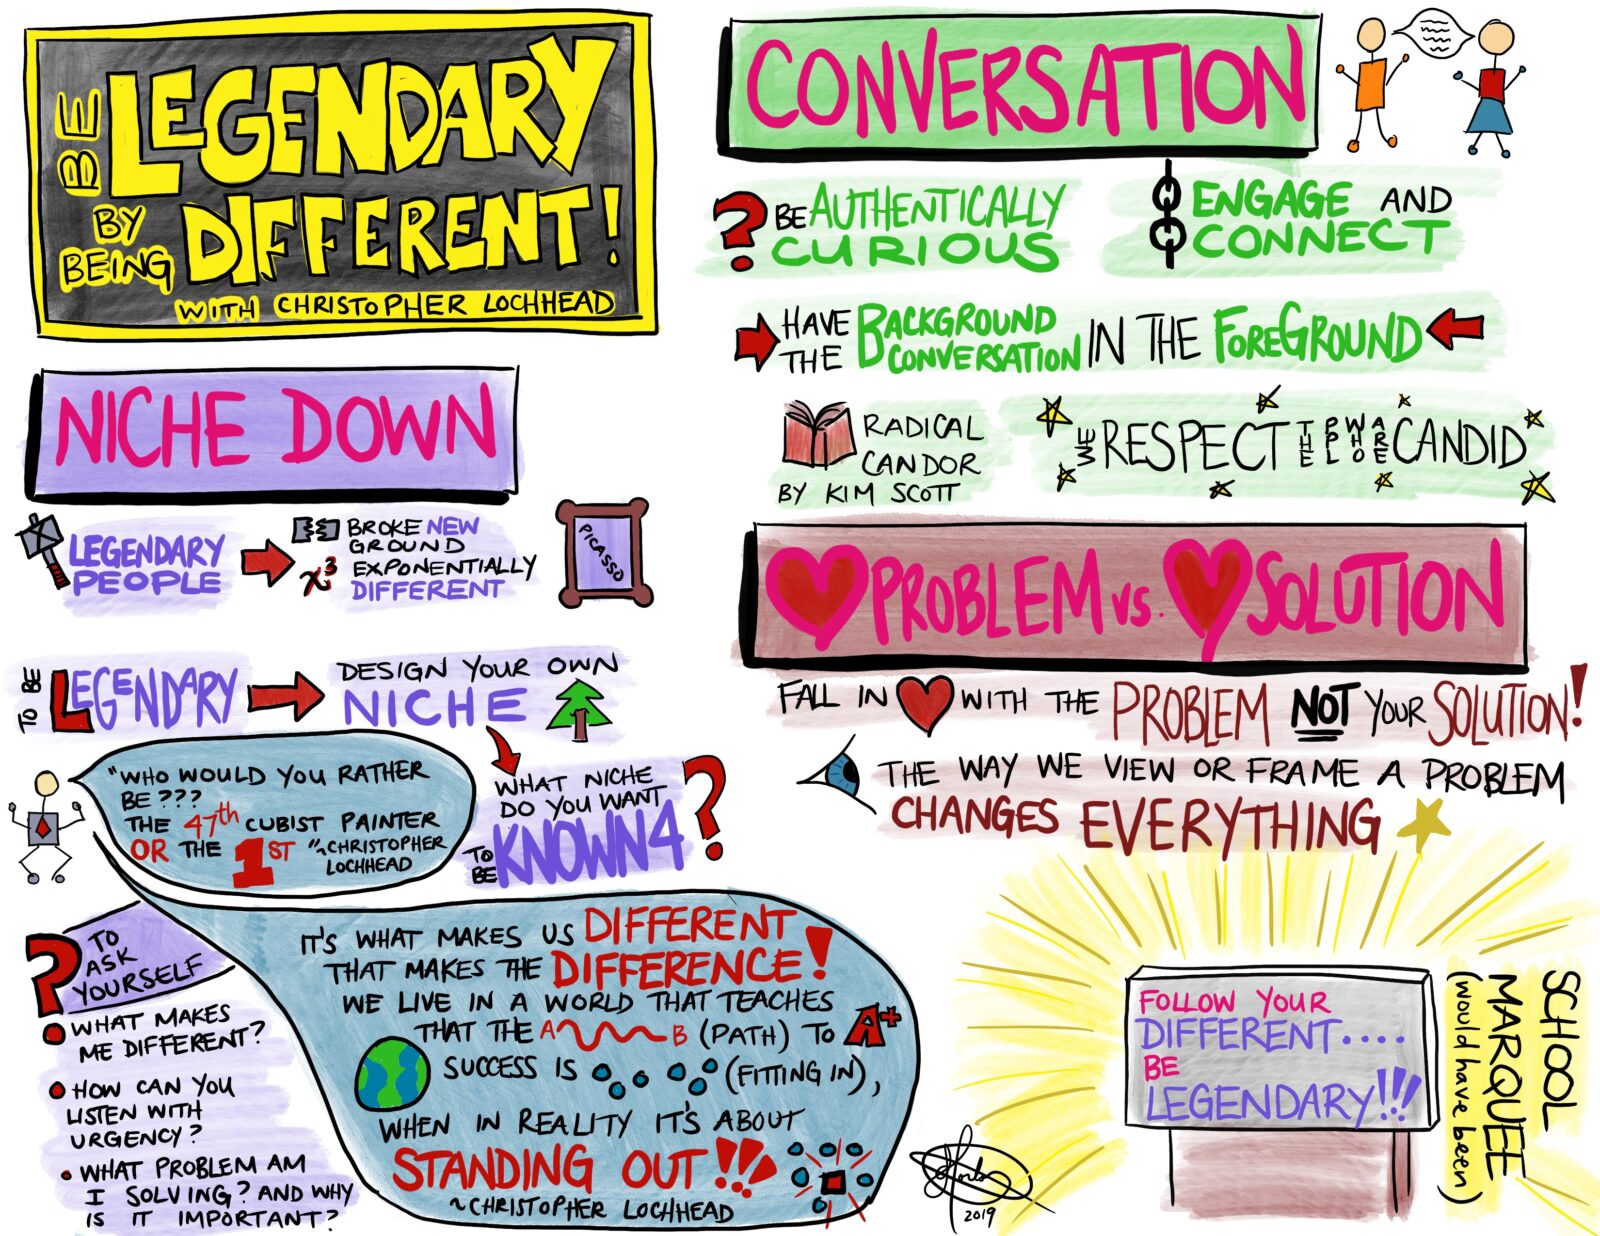 BE LEGENDARY
BY BEING DIFFERENT!
WITH CHRISTOPHER LOCHHEAD
NICHE DOWN
LEGENDARY
PEOPLE
BROKE NEW
GROUND
x³ EXPONENTIALLY
DIFFERENT
PICASSO
TO BE LEGENDARY
DESIGN YOUR OWN
NICHE
WHAT NICHE
DO YOU WANT
TO BE KNOWN 4 ?
"WHO WOULD YOU RATHER
BE ???
THE 47th CUBIST PAINTER
OR THE 1ST" ~CHRISTOPHER
LOCHHEAD
? TO
ASK
YOURSELF
WHAT MAKES
ME DIFFERENT?
HOW CAN YOU
LISTEN WITH
URGENCY?
WHAT PROBLEM AM
I SOLVING? AND WHY
IS IT IMPORTANT?
IT'S WHAT MAKES US DIFFERENT
THAT MAKES THE DIFFERENCE!
WE LIVE IN A WORLD THAT TEACHES
THAT THE A B (PATH) TO A+
SUCCESS IS (FITTING IN),
WHEN IN REALITY IT'S ABOUT
STANDING OUT!!!
~CHRISTOPHER LOCHHEAD
CONVERSATION
? BE AUTHENTICALLY
CURIOUS
ENGAGE AND
CONNECT
HAVE THE BACKGROUND
CONVERSATION IN THE FOREGROUND
RADICAL
CANDOR
BY KIM SCOTT
WE RESPECT THE PPL WHO ARE CANDID
PROBLEM vs. SOLUTION
FALL IN WITH THE PROBLEM NOT YOUR SOLUTION!
THE WAY WE VIEW OR FRAME A PROBLEM
CHANGES EVERYTHING
FOLLOW YOUR
DIFFERENT....
BE
LEGENDARY!!!
SCHOOL
MARQUEE
(would have been)
2019